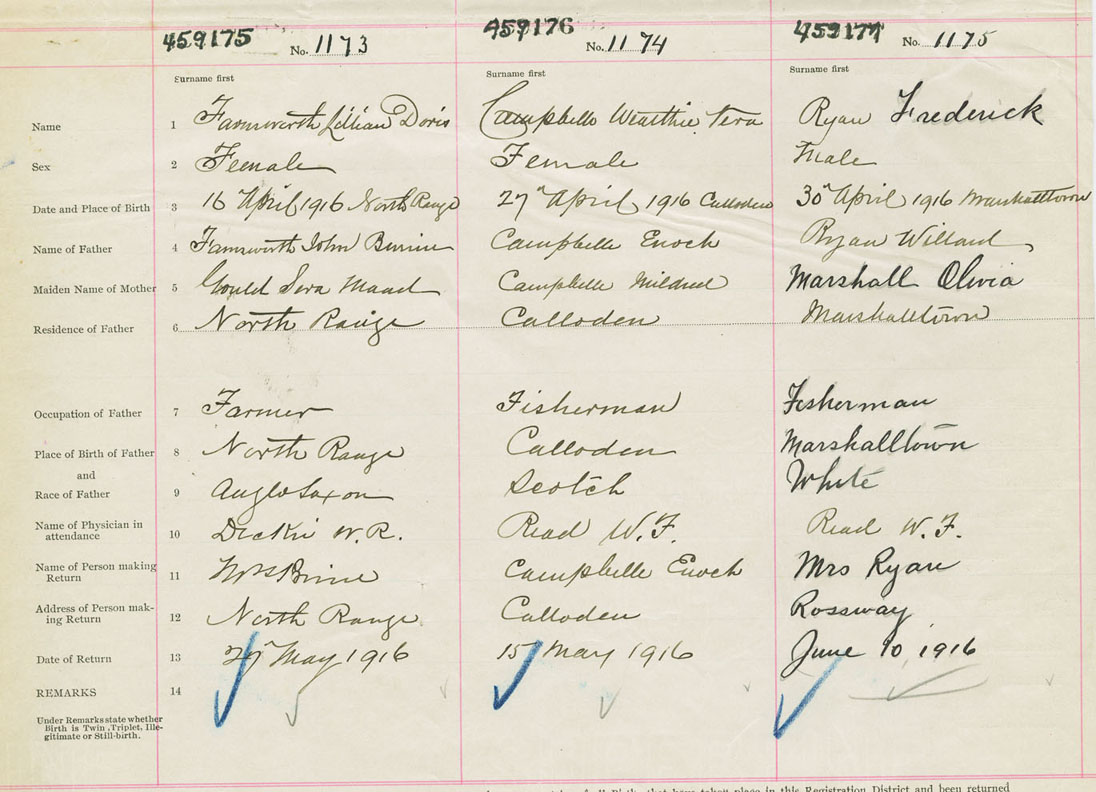 459175 No. 1173 459176 No. 1174 459177 No. 1175
Surname first Surname first Surname first
Name 1 Farnsworth Lillian Doris Campbelle Vera Ryan Frederick
Sex 2 Female Female Male
Date and Place of Birth 3 16 April 1916 North Range 27" April 1916 Culloden 30" April 1916 Marshalltown
Name of Father 4 Farnsworth John Campbelle Enoch Ryan Willard
Maiden Name of Mother 5 Gould Maud Campbelle Mildred Marshall Olivia
Residence of Father 6 North Range Calloden Marshalltown
Occupation of Father 7 Farmer Fisherman Fisherman
Place of Birth of Father 8 North Range Calloden Marshalltown
and
Race of Father 9 Anglo Saxon Scotch White
Name of Physician in
attendance 10 W. R. Read W. F. Read W. F.
Name of Person making
Return 11 Campbelle Enoch Mrs Ryan
Address of Person mak-
ing Return 12 North Range Calloden Rossway
Date of Return 13 27" May 1916 15" May 1916 June 10, 1916
REMARKS 14
Under Remarks state whether
Birth is Twin, Triplet, Ille-
gitimate or Still-birth.
that have taken place in this Registration District and been returned